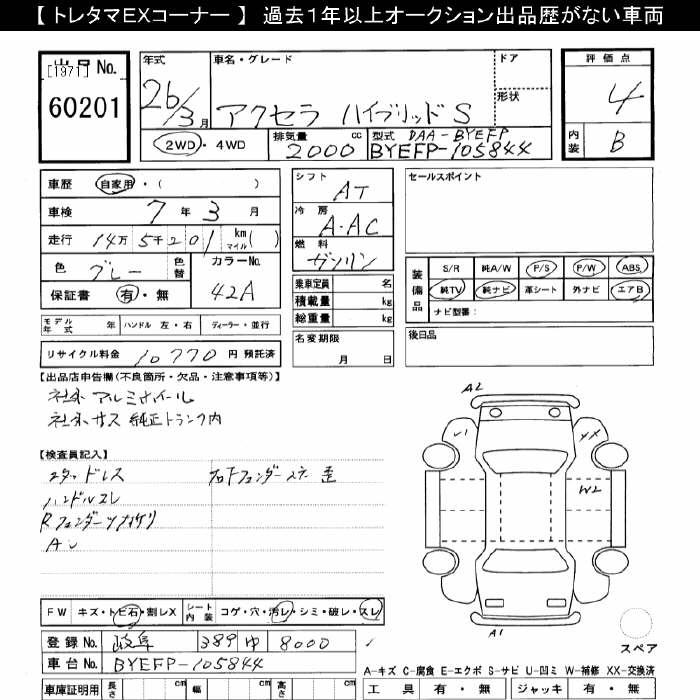 【 トレタマEXコーナー 】 過去1年以上オークション出品歴がない車両
出品 No.
[1971]
60201
年式
26/3月
車名・グレード
アクセラ ハイブリッドS
ドア
形状
評価点
4
内装 B
2WD・4WD
排気量 2000 cc
型式 DAA-BYEFP
BYEFP-105844
車歴 自家用・( )
車検 7年3月
走行 14万5千201 km マイル( )
色 グレー 色替
カラーNo. 42A
保証書 有・無
シフト AT
冷房 A-AC
燃料 ガソリン
乗車定員 名
積載量 kg
総重量 kg
名変期限
月 日
セールスポイント
装備品
S/R 純A/W P/S P/W ABS
純TV 純ナビ 革シート 外ナビ エアB
ナビ型番:
後日品
モデル年式 年 ハンドル 左・右 ディーラー・並行
リサイクル料金 10770 円 預託済
【出品店申告欄(不良箇所・欠品・注意事項等)】
社外アルミホイール
社外サス 純正トランク内
【検査員記入】
スタッドレス
ハンドルスレ
Rフェンダーツメ
フロトフェンダー 歪
A2
U1
XX
W2
A1
スペア
FW キズ・トビ石・割レX
シート内装 コゲ・穴・汚レ・シミ・破レ・スレ
登録 No. 岐阜 389 ゆ 8000
車台 No. BYEFP-105844
A-キズ C-腐食 E-エクボ S-サビ U-凹ミ W-補修 XX-交換済
車庫証明用 長さ cm 幅 cm 高さ cm
工具 有・無 ジャッキ 有・無